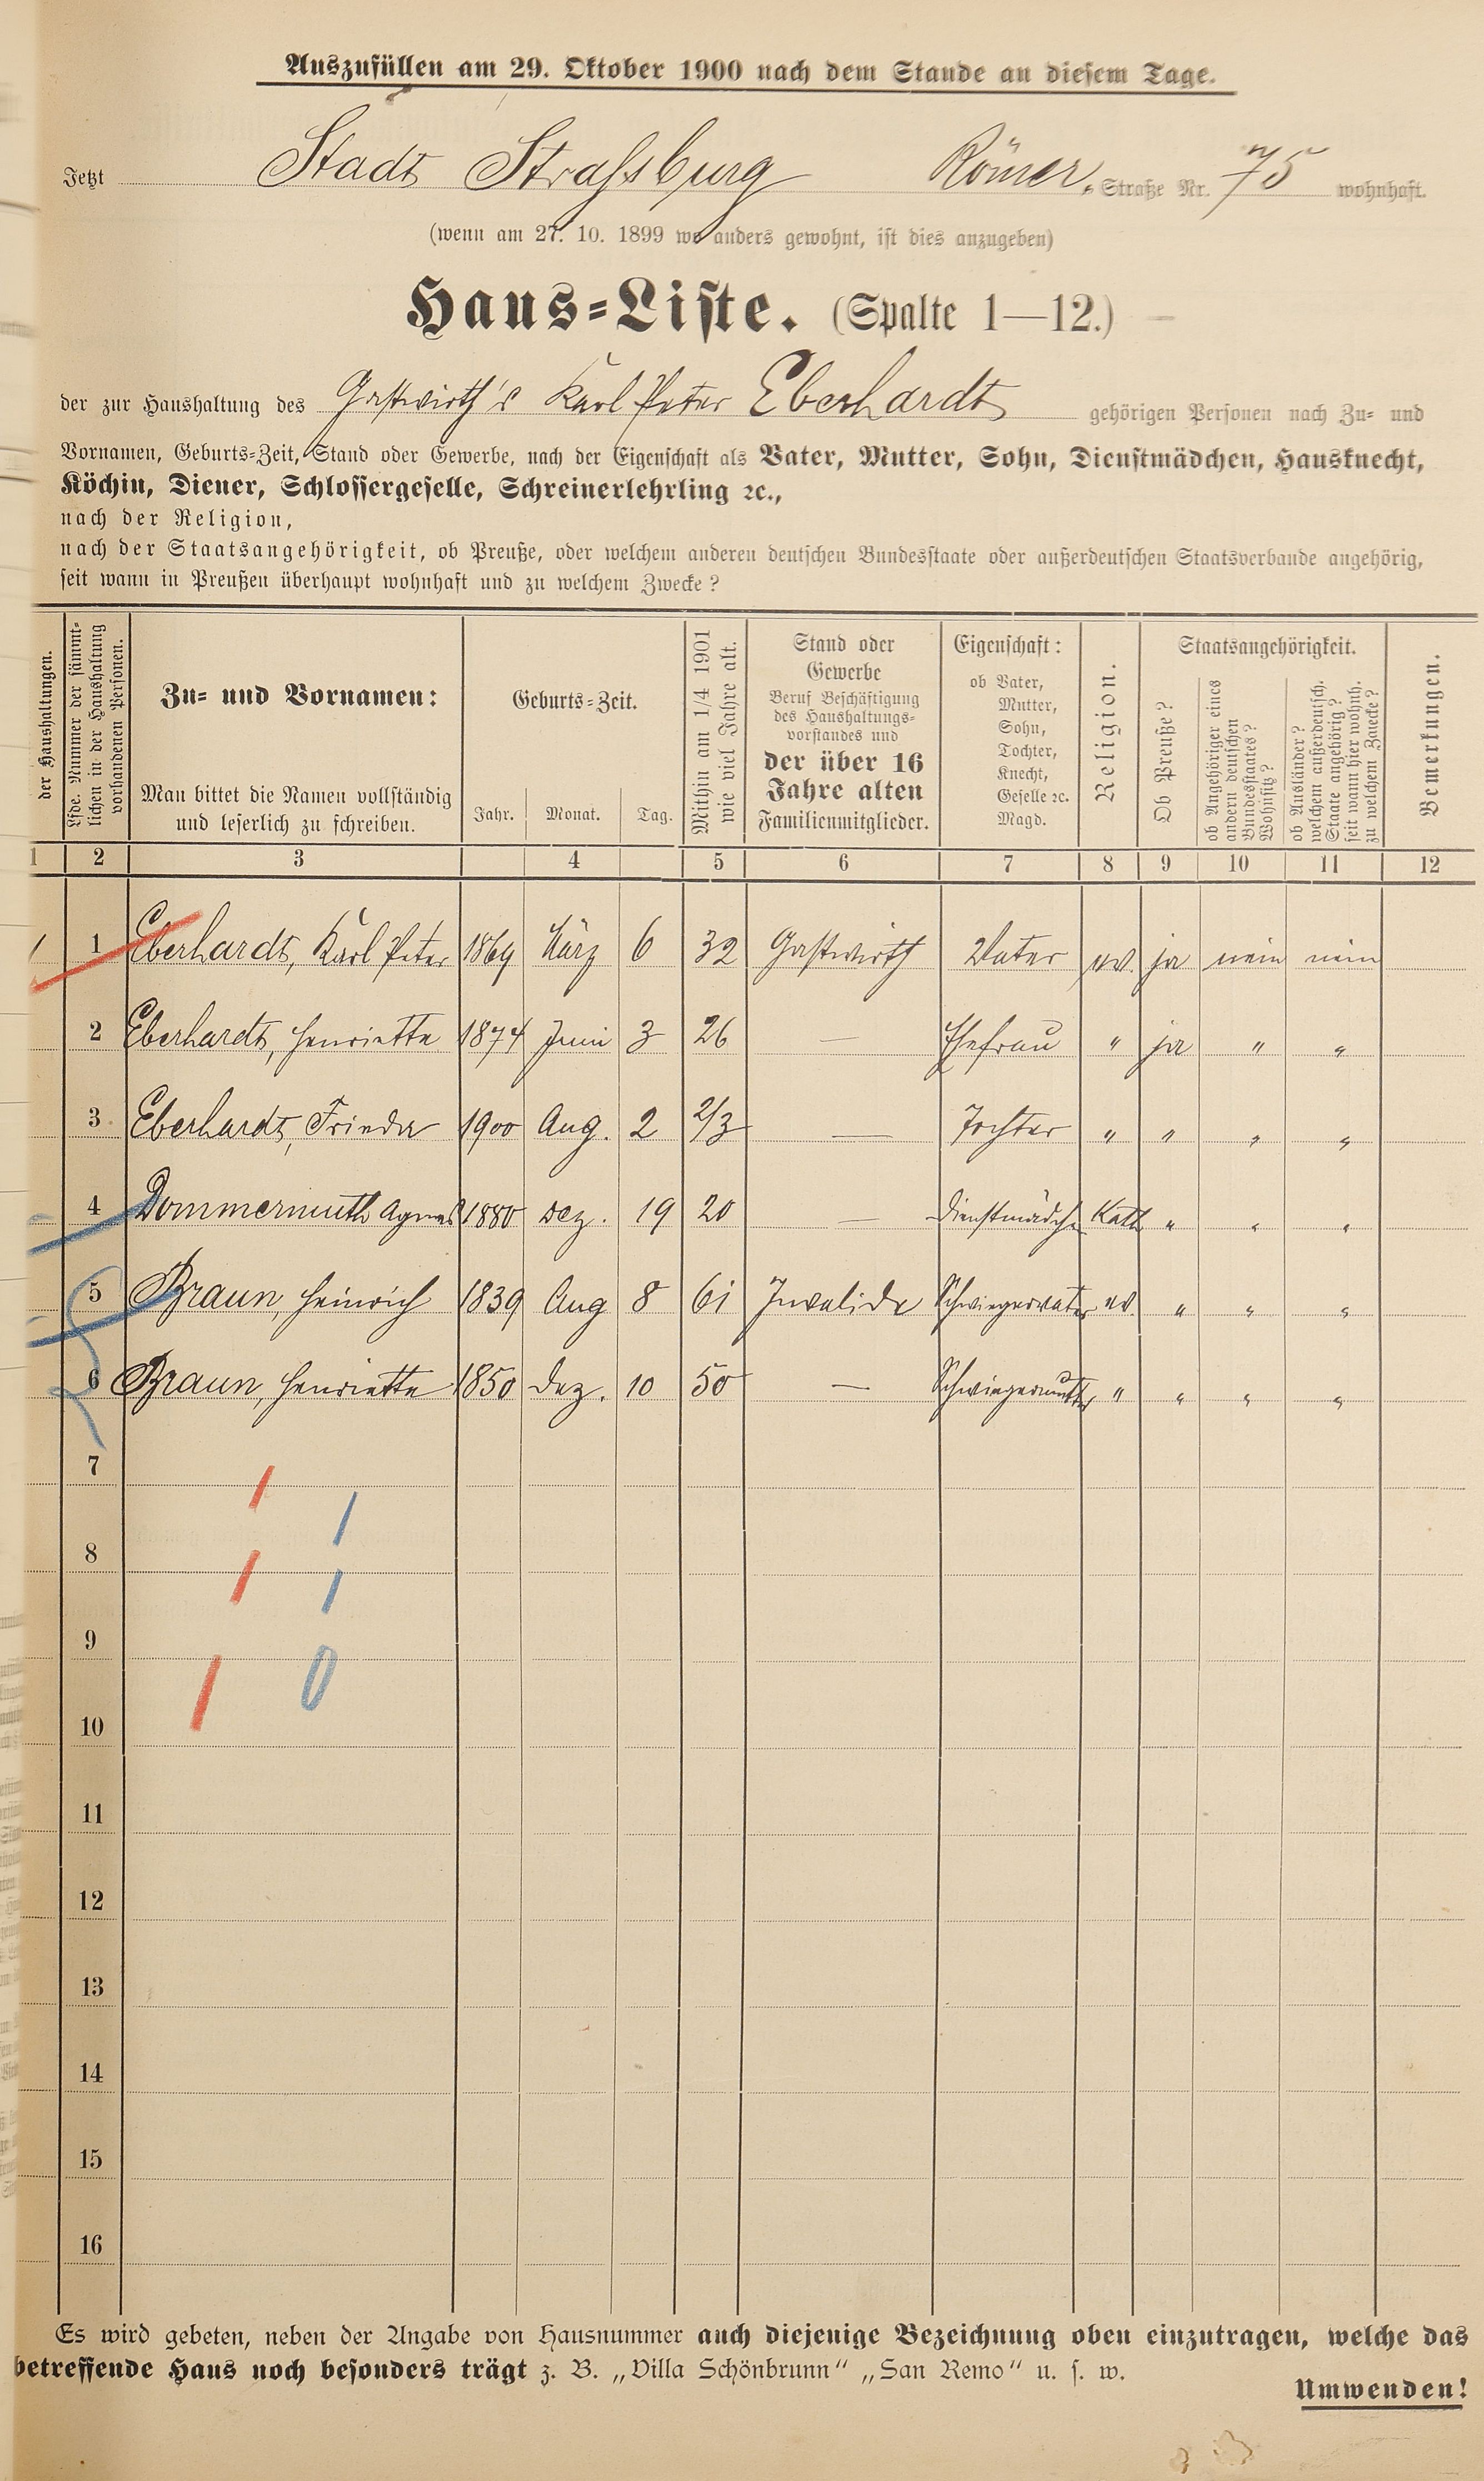 Auszufüllen am 29. Oktober 1900 nach dem Stande an diesem Tage.
Jetzt Stadt Straßburg Römer- Straße Nr. 75 wohnhaft.
(wenn am 27. 10. 1899 wo anders gewohnt, ist dies anzugeben)
Haus-Liste. (Spalte 1—12.)
der zur Haushaltung des Gastwirth's Karl Peter Eberhardt gehörigen Personen nach Zu- und
Vornamen, Geburts-Zeit, Stand oder Gewerbe, nach der Eigenschaft als Vater, Mutter, Sohn, Dienstmädchen, Hausknecht,
Köchin, Diener, Schlossergeselle, Schreinerlehrling ꝛc.,
nach der Religion,
nach der Staatsangehörigkeit, ob Preuße, oder welchem anderen deutschen Bundesstaate oder außerdeutschen Staatsverbande angehörig,
seit wann in Preußen überhaupt wohnhaft und zu welchem Zwecke?
der Haushaltungen.
Lfde. Nummer der sämmt-
lichen in der Haushaltung
vorhandenen Personen.
Zu- und Vornamen:
Man bittet die Namen vollständig
und leserlich zu schreiben.
Geburts-Zeit.
Jahr. Monat. Tag.
Mithin am 1/4 1901
wie viel Jahre alt.
Stand oder
Gewerbe
Beruf Beschäftigung
des Haushaltungs-
vorstandes und
der über 16
Jahre alten
Familienmitglieder.
Eigenschaft:
ob Vater,
Mutter,
Sohn,
Tochter,
Knecht,
Geselle ꝛc.
Magd.
Religion.
Staatsangehörigkeit.
Ob Preuße?
ob Angehöriger eines
andern deutschen
Bundesstaates?
Wohnsitz?
ob Ausländer?
welchem außerdeutsch.
Staate angehörig?
seit wann hier wohnh.
zu welchem Zwecke?
Bemerkungen.
1 2 3 4 5 6 7 8 9 10 11 12
1 1 Eberhardt, Karl Peter 1869 März 6 32 Gastwirth Vater ev. ja nein nein
2 Eberhardt, Henriette 1874 Juni 3 26 — Ehefrau " ja " "
3 Eberhardt, Frieda 1900 Aug. 2 2/3 — Tochter " " " "
4 Dommermuth Agnes 1880 Dez. 19 20 — Dienstmädch. Kath " " "
5 Braun, Heinrich 1839 Aug 8 61 Invalide Schwiegervater ev. " " "
6 Braun, Henriette 1850 Dez. 10 50 — Schwiegermutter " " " "
7
8
9
10
11
12
13
14
15
16
Es wird gebeten, neben der Angabe von Hausnummer auch diejenige Bezeichnung oben einzutragen, welche das
betreffende Haus noch besonders trägt z. B. „Villa Schönbrunn" „San Remo" u. s. w.
Umwenden!